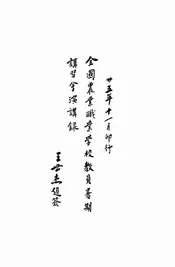 廿五年十一月印行
全國農業職業學校教員暑期
講習會演講錄
王世杰題簽